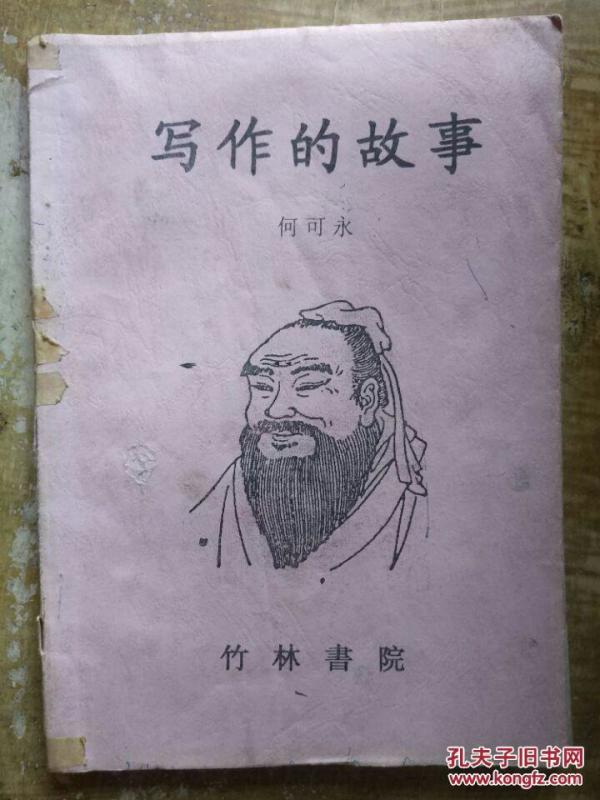 写作的故事
何可永
竹林書院
孔夫子旧书网
www.kongfz.com